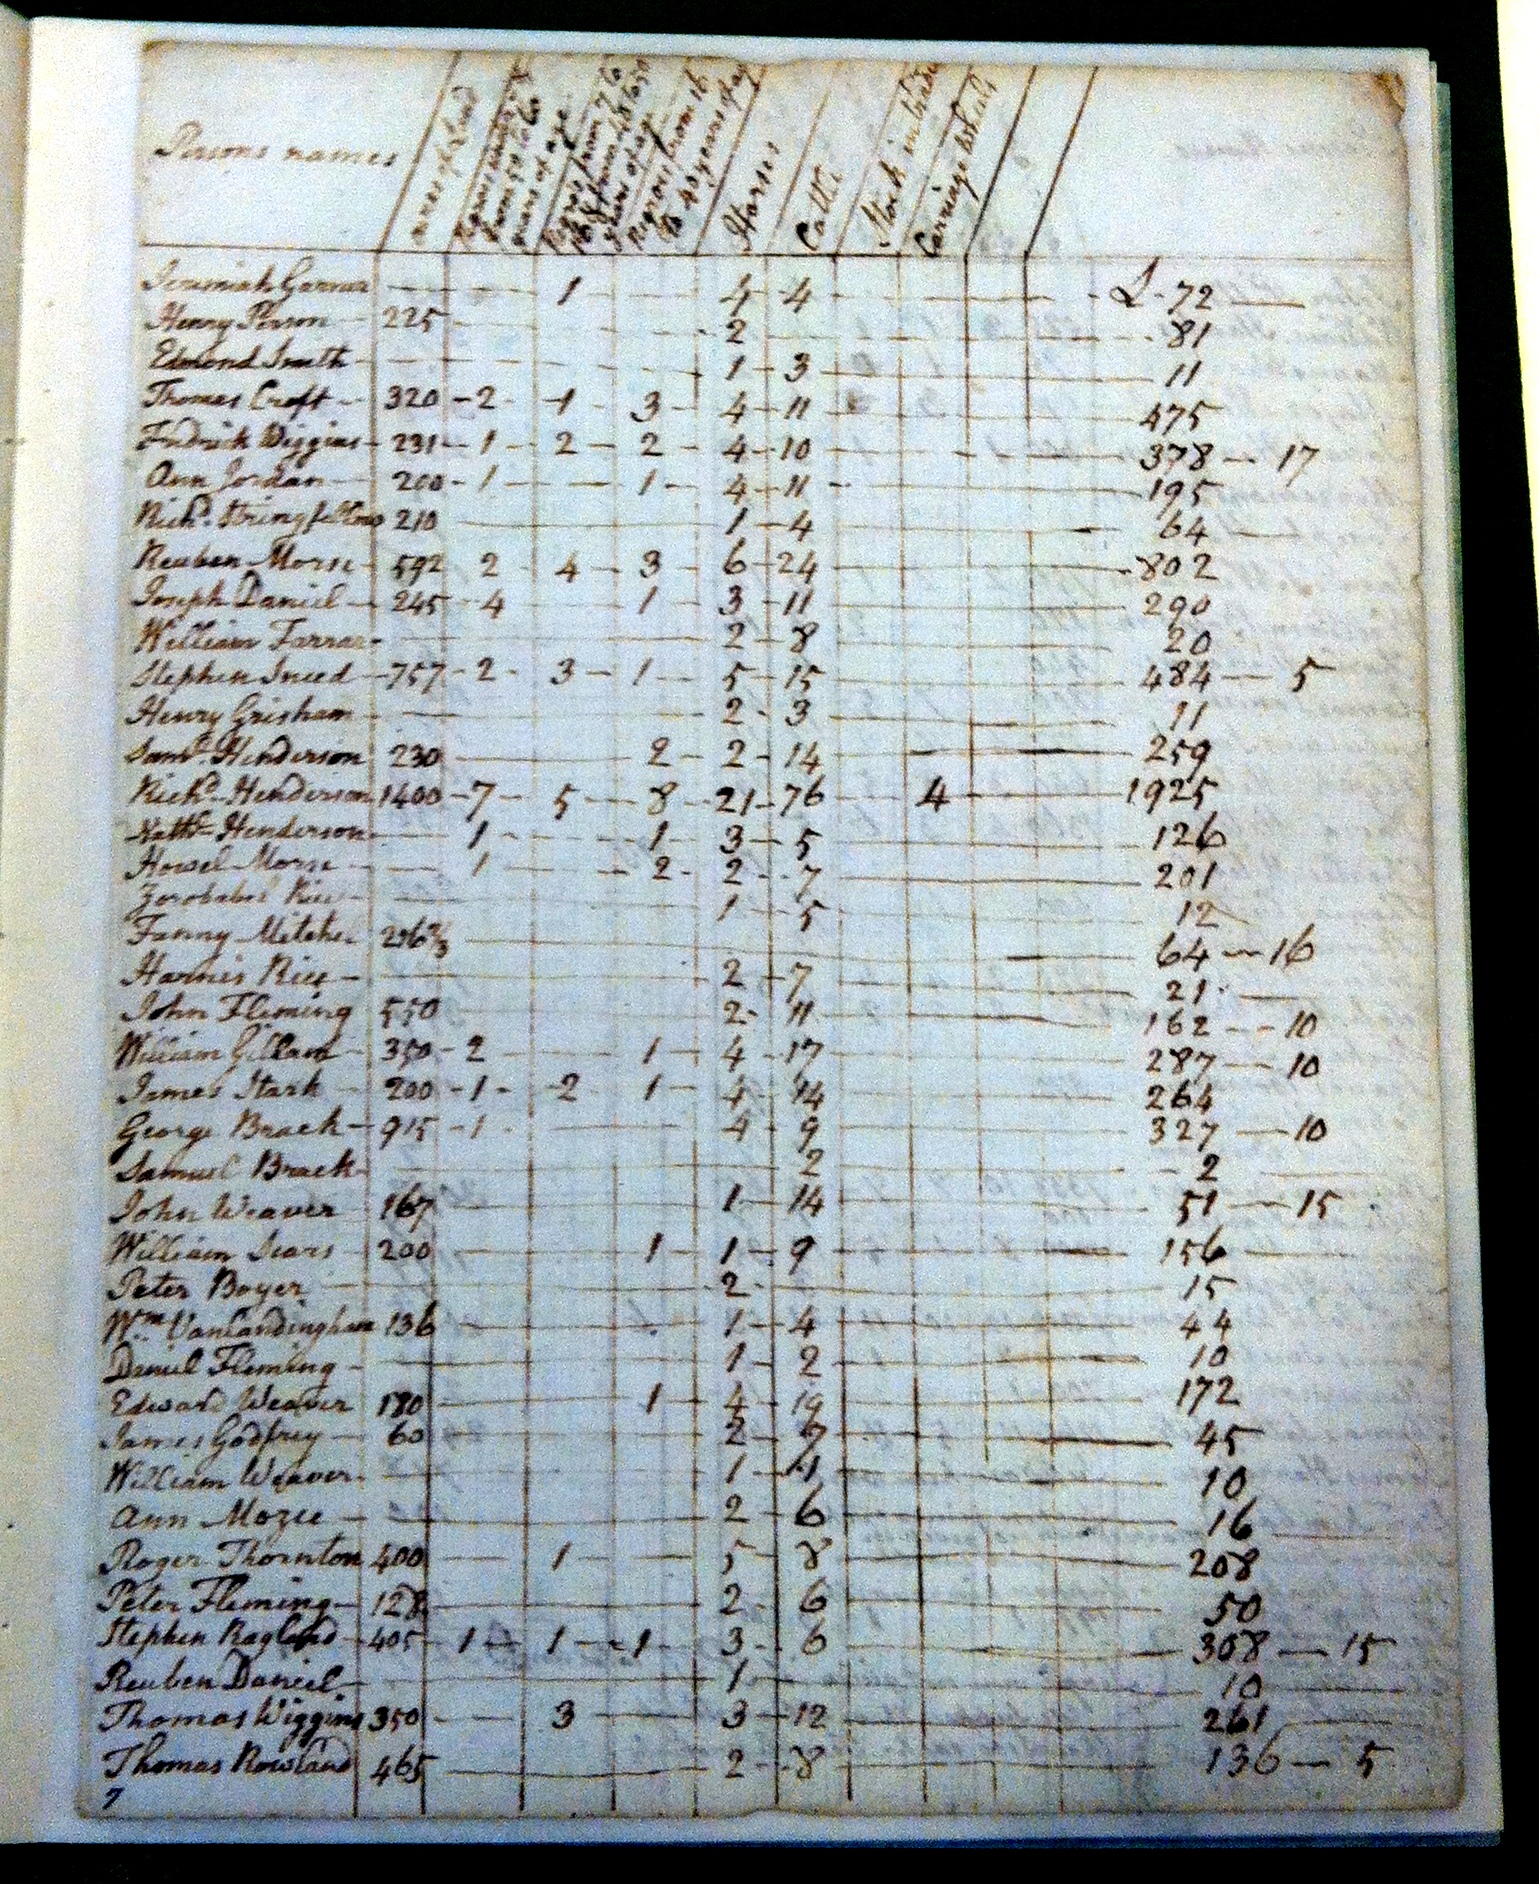 Persons names
acres of Land
Negroes under 7 &
from 50 to 60
years of age
Negroes from 7 to
16 & from 40 to 50
years of age
Negroes from 16
to 40 years of age
Horses
Cattle
Stock in trade
Carriage Wheels
Jeremiah Garner — 1 — 4 4 £ 72 —
Henry Person 225 — 2 — 81
Edmond Smith — 1 3 — 11
Thomas Croft 320 2 1 3 4 11 — 475
Fredrik Wiggins 231 1 2 2 4 10 — 378 — 17
Ann Jordan 200 1 — 1 4 11 — 195
Richd. Stringfellow 210 — 1 4 — 64 —
Reuben Morse 592 2 4 3 6 24 — 802
Joseph Daniel 245 4 — 1 3 11 — 290
William Farrar — 2 8 — 20
Stephen Sneed 757 2 3 1 5 15 — 484 — 5
Henry Grisham — 2 3 — 11
Saml. Henderson 230 — 2 2 14 — 259
Richd. Henderson 1400 7 5 8 21 76 — 4 — 1925
Henderson — 1 — 1 3 5 — 126
Howel Morse — 1 — 2 2 7 — 201
Zorobabel Rice — 1 5 — 12
Fanny Mitchel 296 2/3 — 64 — 16
Harnis Rice — 2 7 — 21 —
John Fleming 550 — 2 11 — 162 — 10
William Gillam 350 2 — 1 4 17 — 287 — 10
James Stark 200 1 2 1 4 14 — 264
George Brack 915 1 — 4 9 — 327 — 10
Samuel Brack — 2 — 2 —
John Weaver 167 — 1 14 — 51 — 15
William Sears 200 — 1 1 9 — 156 —
Peter Boyer — 2 — 15
Wm. Vanlandingham 136 — 1 4 — 44
Daniel Fleming — 1 2 — 10
Edward Weaver 180 — 1 4 19 — 172
James Godfrey 60 — 2 — 45
William Weaver — 1 — 10
Ann Mozee — 2 6 — 16 —
Roger Thornton 400 — 1 — 5 8 — 208
Peter Fleming 128 — 2 6 — 50
Stephen Ragland 405 1 1 1 3 6 — 308 — 15
Reuben Daniel — 1 — 10 —
Thomas Wiggins 350 — 3 — 3 12 — 261 —
Thomas Rowland 465 — 2 8 — 136 — 5
7